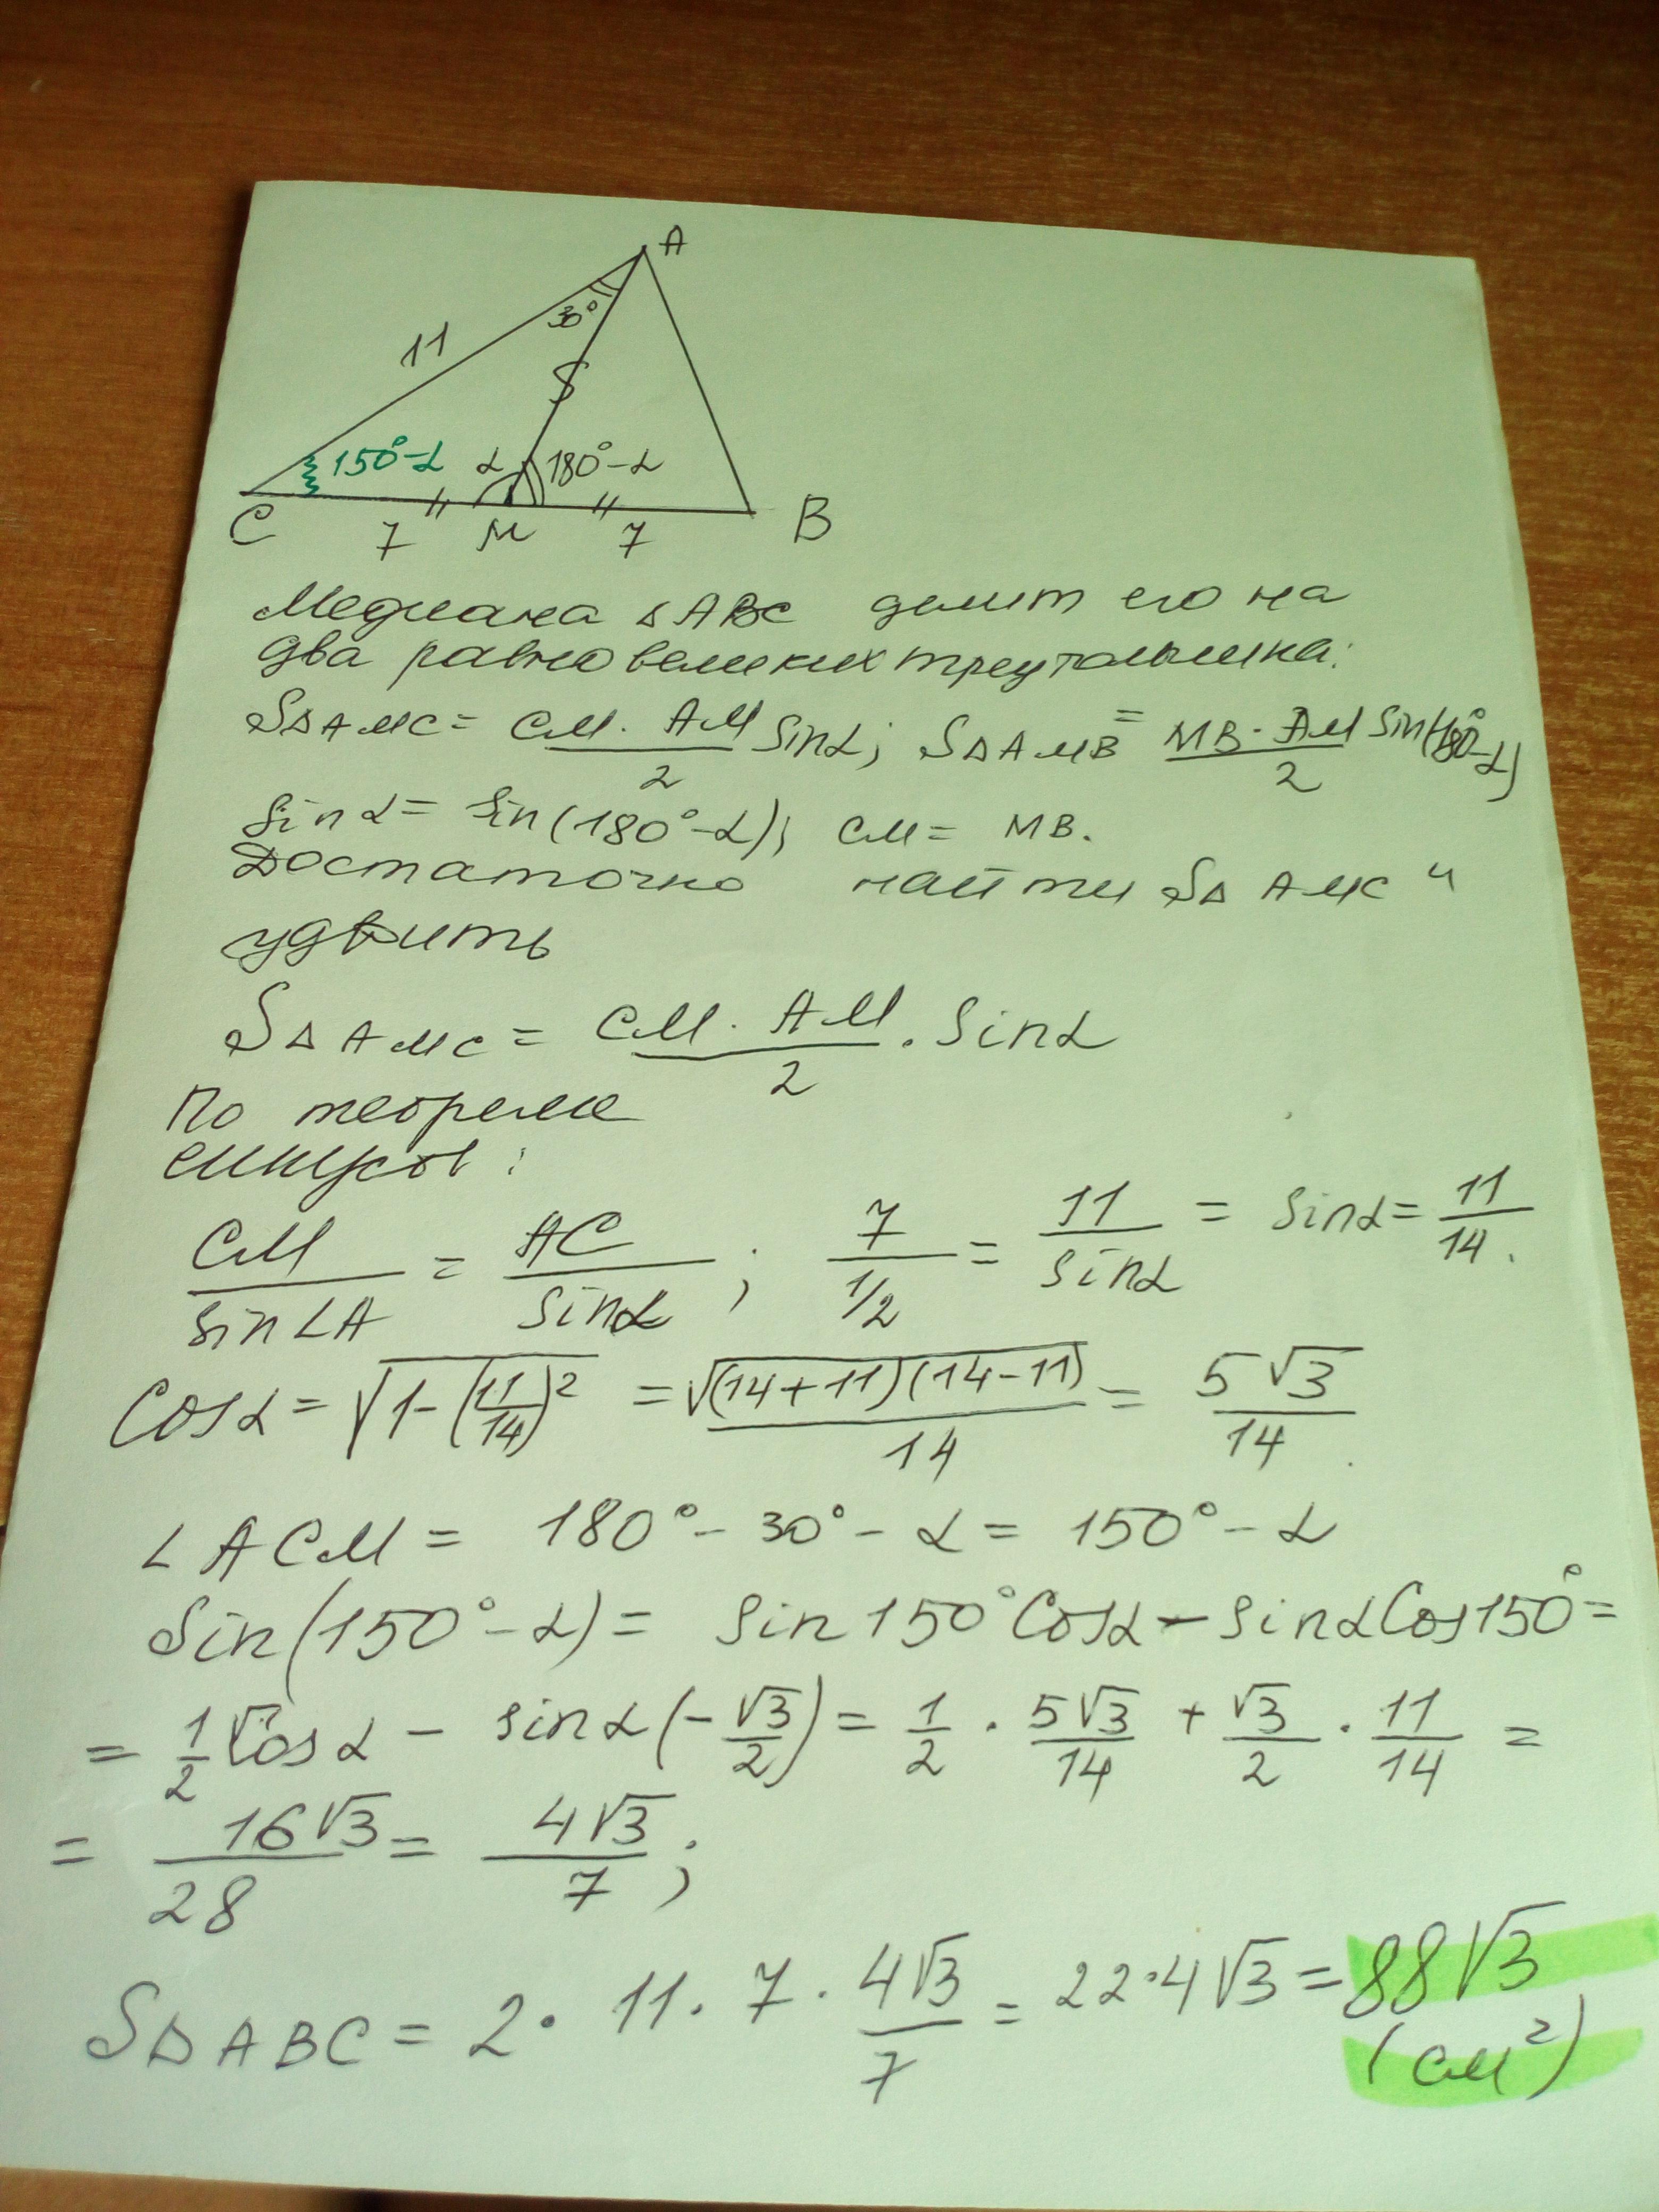 A
30°
11
S
150°-α α 180°-α
C 7 M 7 B
Медиана △ABC делит его на
два равновеликих треугольника:
S△AMC = CM · AM / 2 sinα; S△AMB = MB · AM / 2 sin(180°-α)
sinα = sin(180°-α); CM = MB.
Достаточно найти S△AMC и
удвоить
S△AMC = CM · AM / 2 · sinα
По теореме
синусов:
CM / sin∠A = AC / sinα; 7 / 1/2 = 11 / sinα = sinα = 11/14.
Cosα = √1-(11/14)² = √(14+11)(14-11) / 14 = 5√3 / 14.
∠ACM = 180° - 30° - α = 150° - α
Sin(150°-α) = sin150°Cosα - sinαCos150° =
= 1/2 Cosα - sinα(-√3/2) = 1/2 · 5√3/14 + √3/2 · 11/14 =
= 16√3/28 = 4√3/7;
S△ABC = 2 · 11 · 7 · 4√3/7 = 22·4√3 = 88√3
(см²)